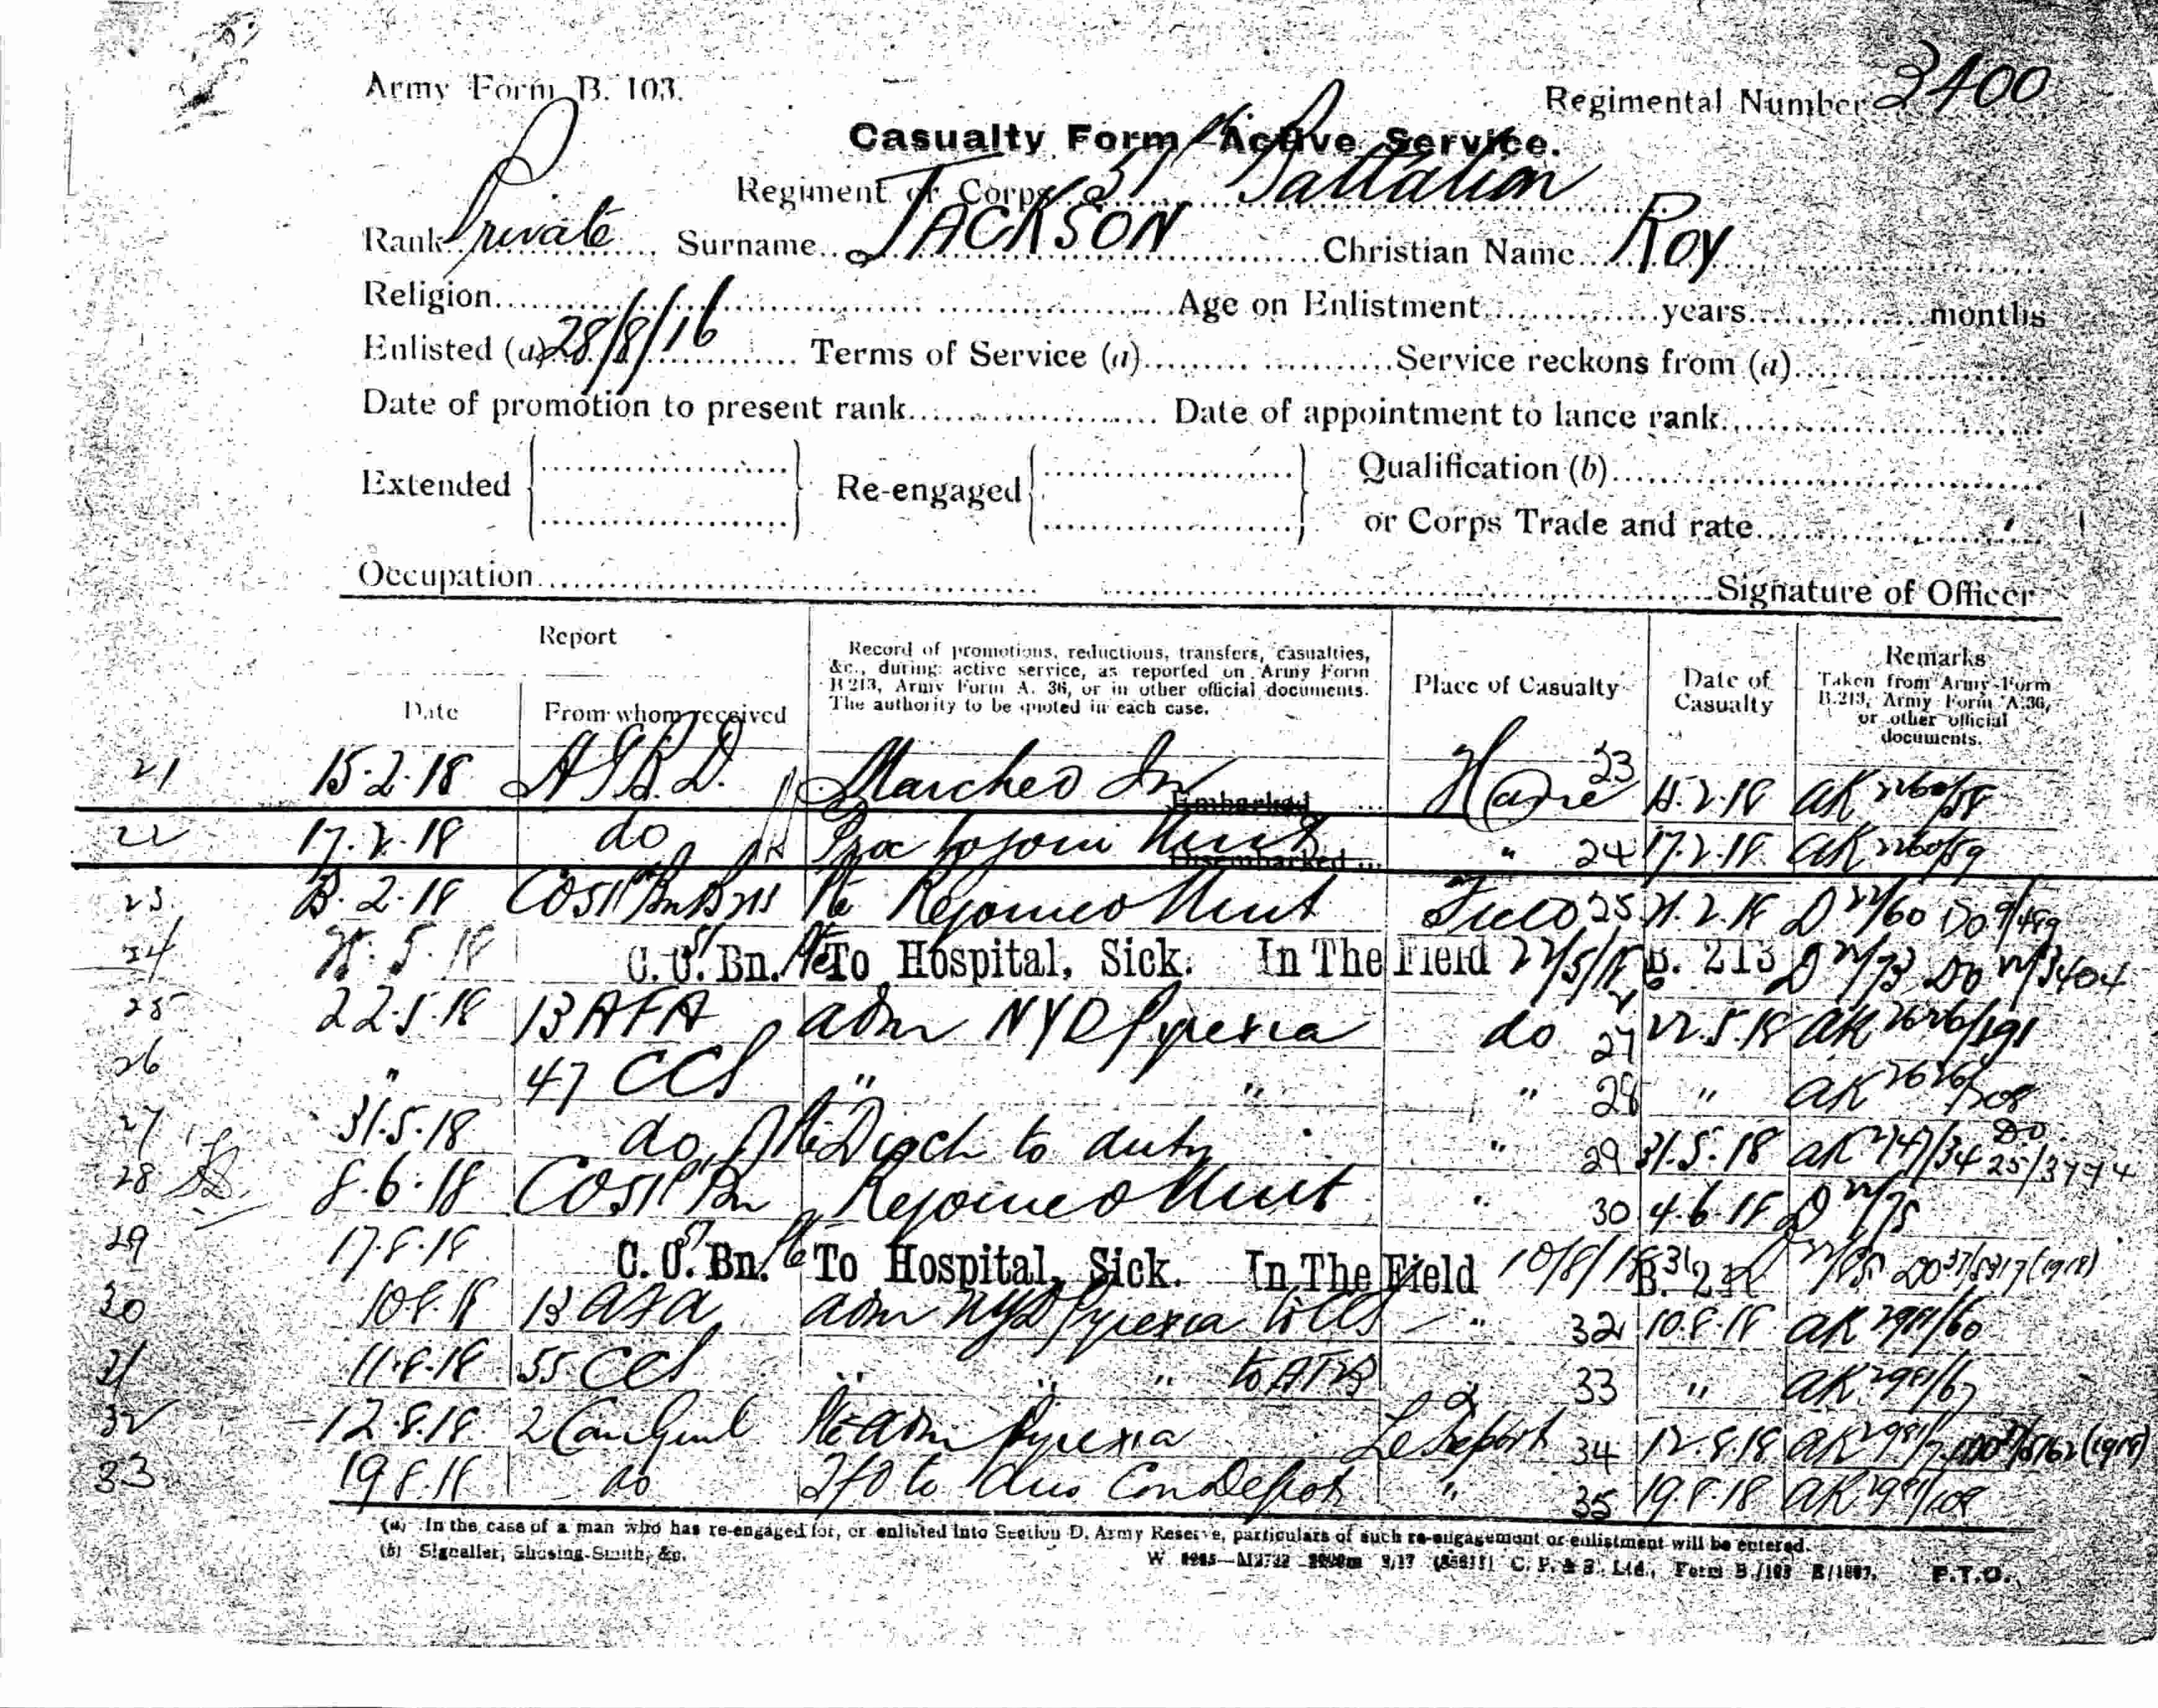 Army Form B. 103.
Regimental Number 3400
Casualty Form Active Service.
Regiment or Corps 51st Battalion
Rank Private Surname JACKSON Christian Name Roy
Religion Age on Enlistment years months
Enlisted (a) 28/8/16 Terms of Service (a) Service reckons from (a)
Date of promotion to present rank Date of appointment to lance rank
Extended Re-engaged Qualification (b)
or Corps Trade and rate
Occupation Signature of Officer
Report
Date From whom received
Record of promotions, reductions, transfers, casualties,
&c., during active service, as reported on Army Form
B 213, Army Form A. 36, or in other official documents.
The authority to be quoted in each case.
Place of Casualty
Date of
Casualty
Remarks
Taken from Army Form
B.213, Army Form A.36,
or other official
documents.
21 15.2.18 Marched In Embarked Havre 23 15.2.18 AK 2260/58
22 17.2.18 do to join Unit Disembarked " 24 17.2.18 AK 2260/59
23 2.18 CO 51st Bn Rejoined Unit Field 25 21.2.18 D 22/60 DO 9/489
24 5.18 C.O. 51 Bn. To Hospital, Sick. In The Field 22/5/18 B. 213 D 22/73 DO 22/3404
25 22.5.18 13 AFA adm NYD Pyrexia do 27 22.5.18 AK 2626/191
26 " 47 CCS " " " 28 " AK 2626/208
27 31.5.18 do Disch to duty " 29 31.5.18 AK 2747/34 DO 25/3794
28 8.6.18 CO 51st Bn Rejoined Unit " 30 4.6.18 D 22/75
29 17.8.18 C.O. 51 Bn. To Hospital, Sick. In The Field 10/8/18 31 DO 37/5317 (1918)
30 10.8.18 13 AFA adm NYD Pyrexia to CCS " 32 10.8.18 AK 2981/60
31 11.8.18 55 CCS " " " to AT " 33 " AK 2981/67
32 12.8.18 2 Can Genl adm Pyrexia Le Treport 34 12.8.18 (1918)
33 19.8.18 do to Aus Con Depot " 35 19.8.18 AK 2981/108
(a) In the case of a man who has re-engaged for, or enlisted into Section D. Army Reserve, particulars of such re-engagement or enlistment will be entered.
(b) Signaller, Shoeing-Smith, &c.
C. P. & S. Ltd., Form B./103 P.T.O.